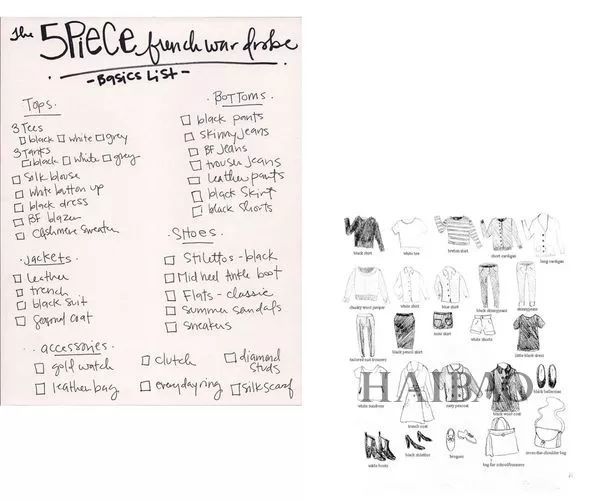 The 5 PIECE french wardrobe
- Basics List -
Tops.
3 Tees
black white grey
3 Tanks
black white grey
Silk blouse
white button up
black dress
BF blazer
Cashmere Sweater
Jackets.
leather
trench
black suit
Seasonal coat
BOTTOMS.
black pants
skinny jeans
BF jeans
trouser jeans
Leather pants
black Skirt
black Shorts
Shoes.
Stilettos - black
Mid heel Ankle boot
Flats - classic
summer sandals
sneakers
accessories.
gold watch clutch diamond studs
leather bag everyday ring silk scarf
black shirt white tee breton shirt short cardigan long cardigan
chunky wool jumper white shirt blue shirt black skinnyjeans skinnyjeans
tailored suit trousers black pencil skirt white shorts little black dress
trench coat navy peacoat black wool coat black ballerinas
HAIBAO
ankle boots black stilettos brogues bag for school/business cross-the-shoulder bag